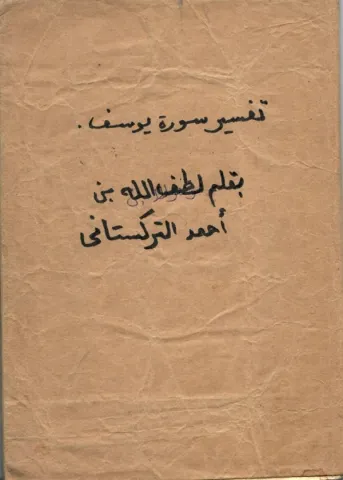 تفسير سورة يوسف.
بقلم لطف الله بن
أحمد التركستاني